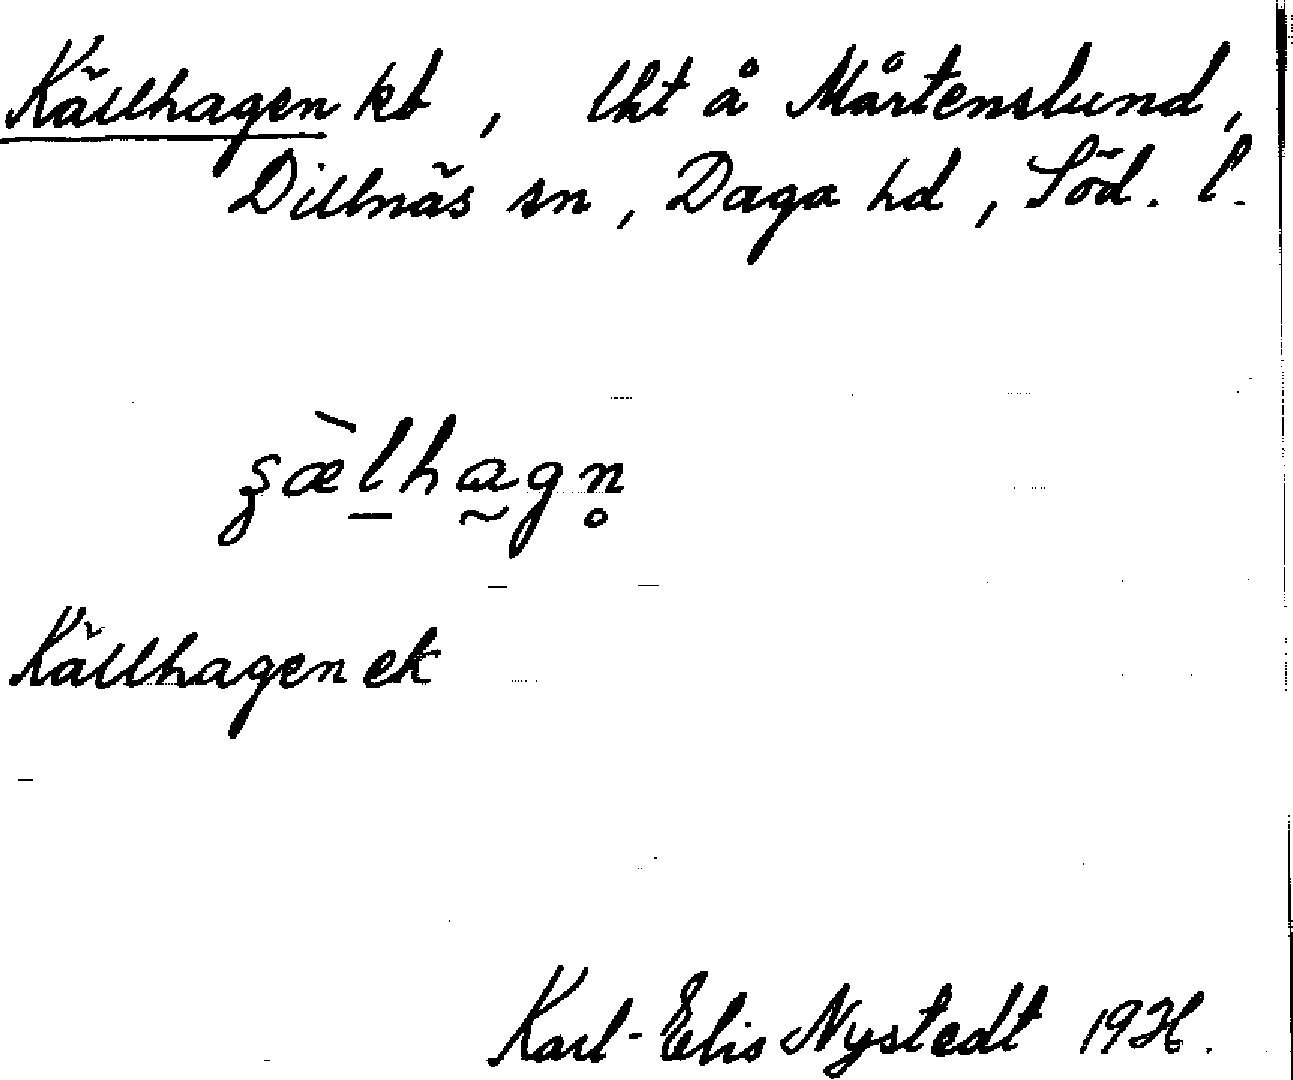 Källhagen kt, lht å Mårtenslund,
Dillnäs sn, Daga hd, Söd. l.
ʂæ̀l̠ha̰gn̥
Källhagen ek
Karl-Elis Nystedt 1936.